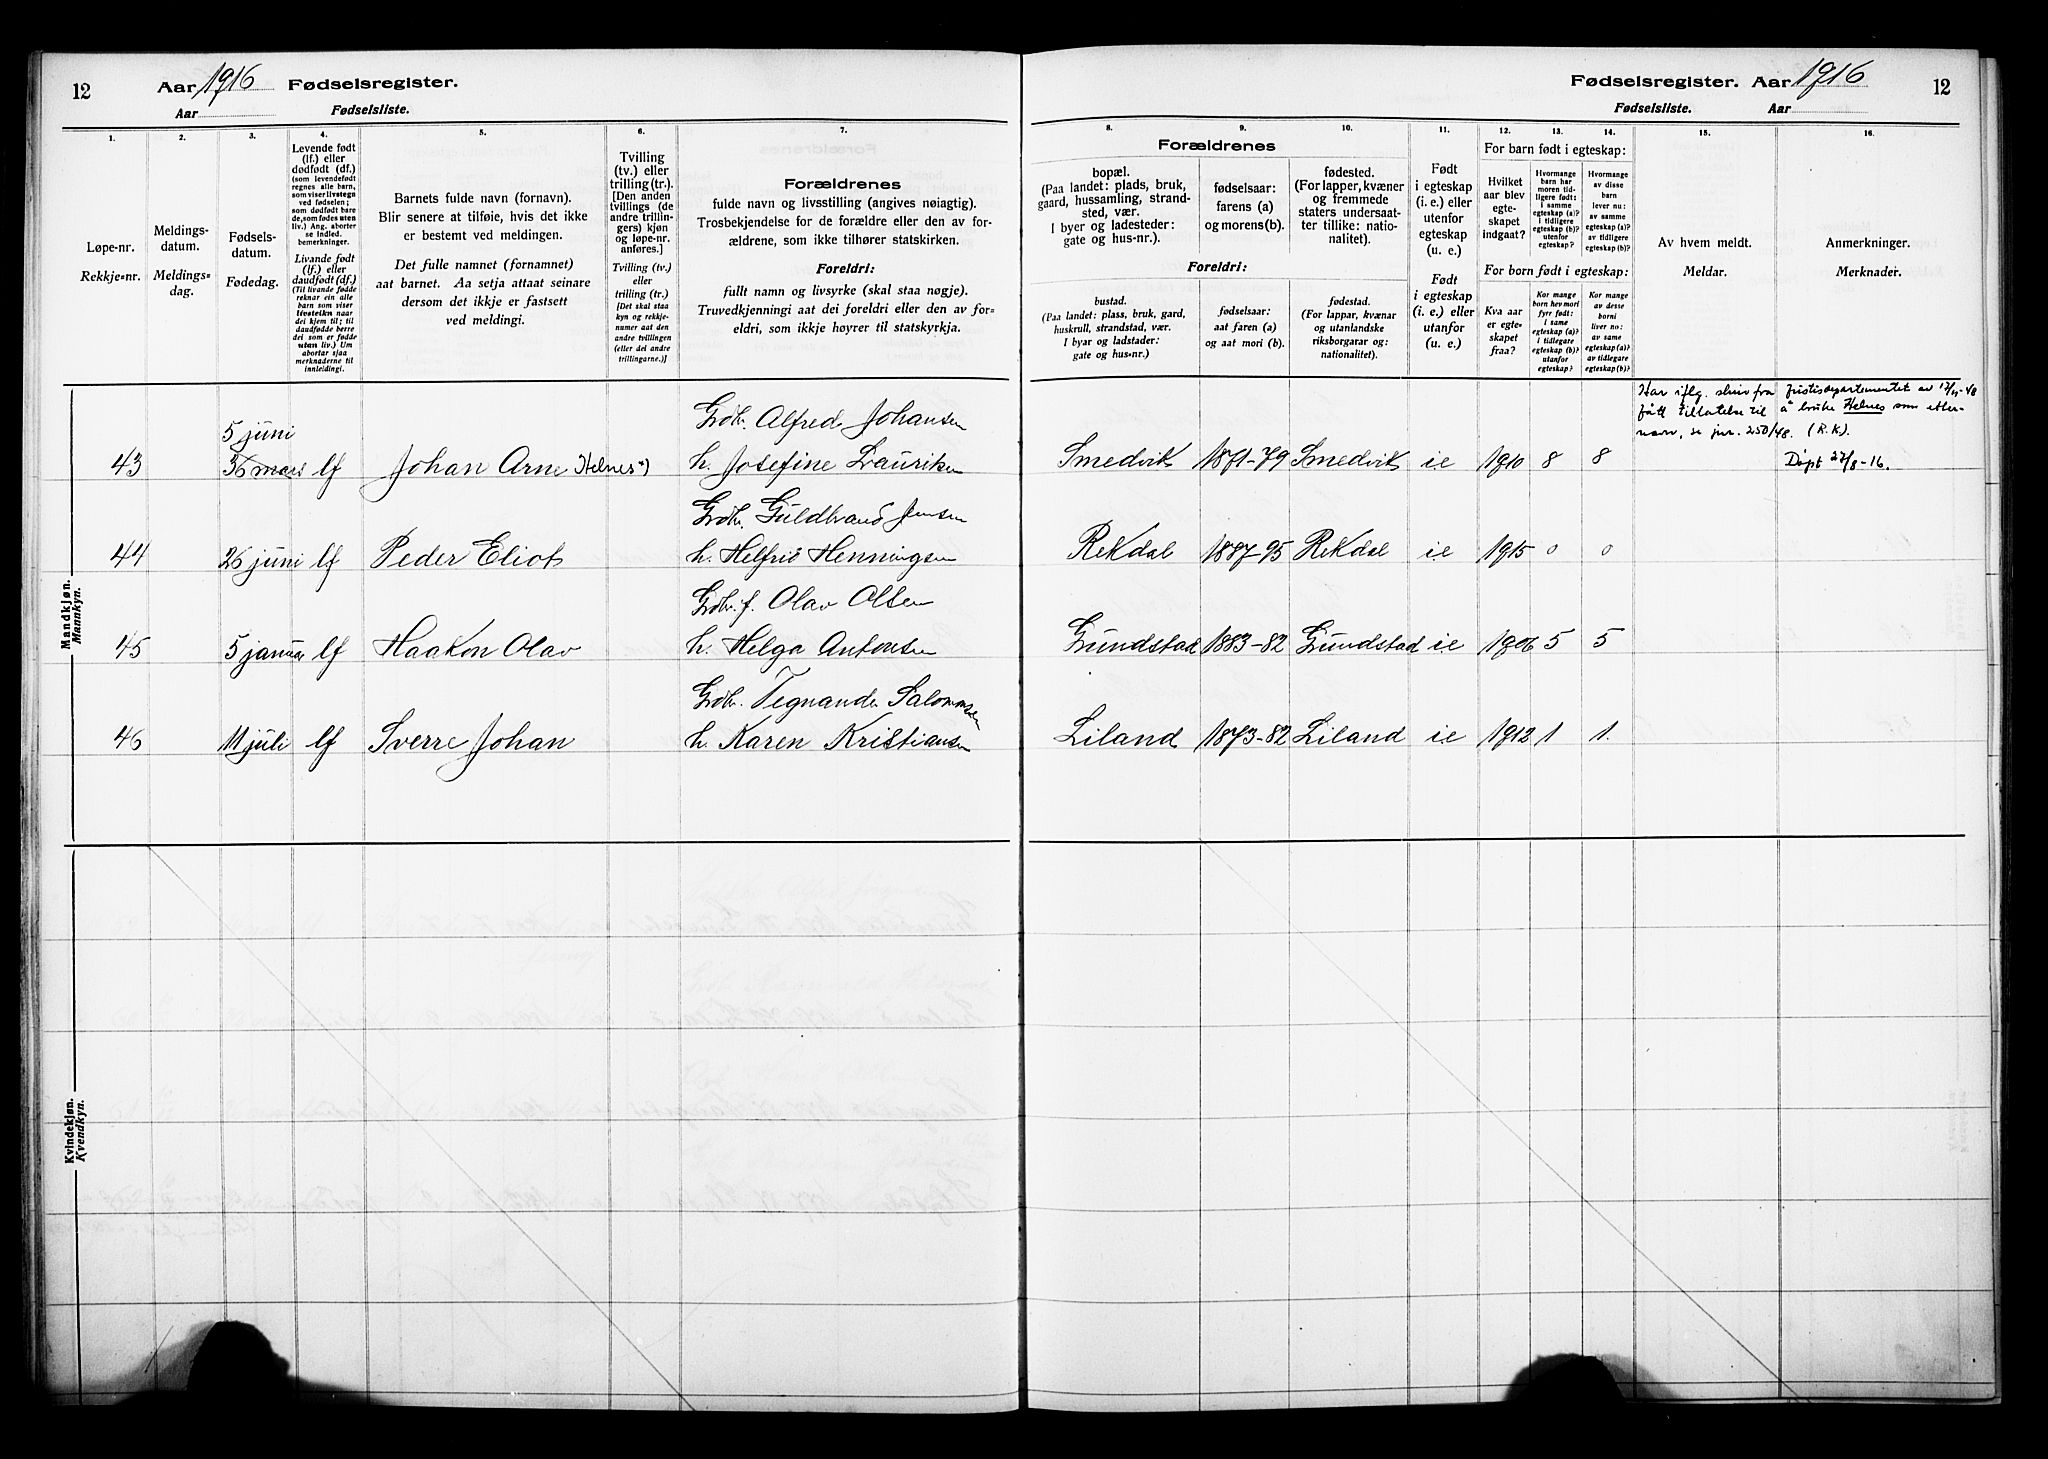 12 Aar 1916 Fødselsregister.
Aar Fødselsliste.
1. 2. 3. 4. 5. 6. 7.
Løpe-nr.
Rekkje=nr.
Meldings-
datum.
Meldings=
dag.
Fødsels-
datum.
Fødedag.
Levende født
(lf.) eller
dødfødt (df.)
(som levendefødt
regnes alle barn,
som viser livstegn
ved fødselen;
som dødfødt bare
de, som fødes uten
liv.) Ang. aborter
se Indled.
bemerkninger.
Livande født
(lf.) eller
daudfødt (df.)
(Til livande fødde
reknar ein alle
born som viser
livsteikn naar
dei kjem til; til
daudfødde berre
dei som er fødde
utan liv.) Um
abortar sjaa
merknaderne til
innleidingi.
Barnets fulde navn (fornavn).
Blir senere at tilføie, hvis det ikke
er bestemt ved meldingen.
Det fulle namnet (fornamnet)
aat barnet. Aa setja attaat seinare
dersom det ikkje er fastsett
ved meldingi.
Tvilling
(tv.) eller
trilling (tr.).
[Den anden
tvillings (de
andre trillin-
gers) kjøn
og løpe-nr.
anføres.]
Tvilling (tv.)
eller
trilling (tr.)
[Det skal staa
kyn og rekkje-
numer aat den
andre tvillingen
(eller dei andre
trillingarne.)]
Forældrenes
fulde navn og livsstilling (angives nøiagtig).
Trosbekjendelse for de forældre eller den av for-
ældrene, som ikke tilhører statskirken.
Foreldri:
fullt namn og livsyrke (skal staa nøgje).
Truvedkjenningi aat dei foreldri eller den av for=
eldri, som ikkje høyrer til statskyrkja.
Mandkjøn.
Mannkyn.
5 juni Grdbr. Alfred Johansen
43 36 mars lf Johan Arne Helnes*) h. Josefine Lauriksen
Grdbr. Guldbrand Jensen
44 26 juni lf Peder Eliot h. Helfrid Henningsen
Grdbr. f. Olav Olsen
45 5 januar lf Haakon Olav h. Helga Antonsen
Grdbr. Tegnander Salomonsen
46 11 juli lf Sverre Johan h. Karen Kristiansen
Kvindekjøn.
Kvendkyn.
Fødselsregister. Aar 1916 12
Fødselsliste. Aar
8. 9. 10. 11. 12. 13. 14. 15. 16.
Forældrenes
bopæl.
(Paa landet: plads, bruk,
gaard, hussamling, strand-
sted, vær.
I byer og ladesteder:
gate og hus-nr.).
fødselsaar:
farens (a)
og morens (b).
fødested.
(For lapper, kvæner
og fremmede
staters undersaat-
ter tillike: natio-
nalitet).
Foreldri:
bustad.
(Paa landet: plass, bruk, gard,
huskrull, strandstad, vær.
I byar og ladstader:
gate og hus=nr.)
fødselsaar:
aat faren (a)
og aat mori (b).
fødestad.
(For lappar, kvænar
og utanlandske
riksborgarar og:
nationalitet).
Født
i egteskap
(i. e.) eller
utenfor
egteskap
(u. e.)
Født
i egteskap
(i. e.) eller
utanfor
(u. e.)
For barn født i egteskap:
Hvilket
aar blev
egte-
skapet
indgaat?
Hvormange
barn har
moren tid-
ligere født:
i samme
egteskap (a)?
i tidligere
egteskap (b)?
utenfor
egteskap?
Hvormange
av disse
barn
lever nu:
av samme
egteskap (a)?
av tidligere
egteskap (b)?
For born født i egteskap:
Kva aar
er egte-
skapet
fraa?
Kor mange
born hev mori
fyrr født:
i same
egteskap (a)?
i tidlegare
egteskap (b)?
utanfor
egteskap?
Kor mange
av desse
borni
liver no:
av same
egteskap (a)?
av tidlegare
egteskap (b)?
Av hvem meldt.
Meldar.
Anmerkninger.
Merknader.
Har iflg. skriv fra Justisdepartementet av 12/11-48
fått tillatelse til å bruke Helnes som etter-
navn, se jnr. 250/48. (R.K.).
Smedvik 1871-79 Smedvik ie 1910 8 8 Døpt 27/8-16.
Rekdal 1887-95 Rekdal ie 1915 0 0
Gundstad 1883-82 Gundstad ie 1906 5 5
Liland 1873-82 Liland ie 1912 1 1.